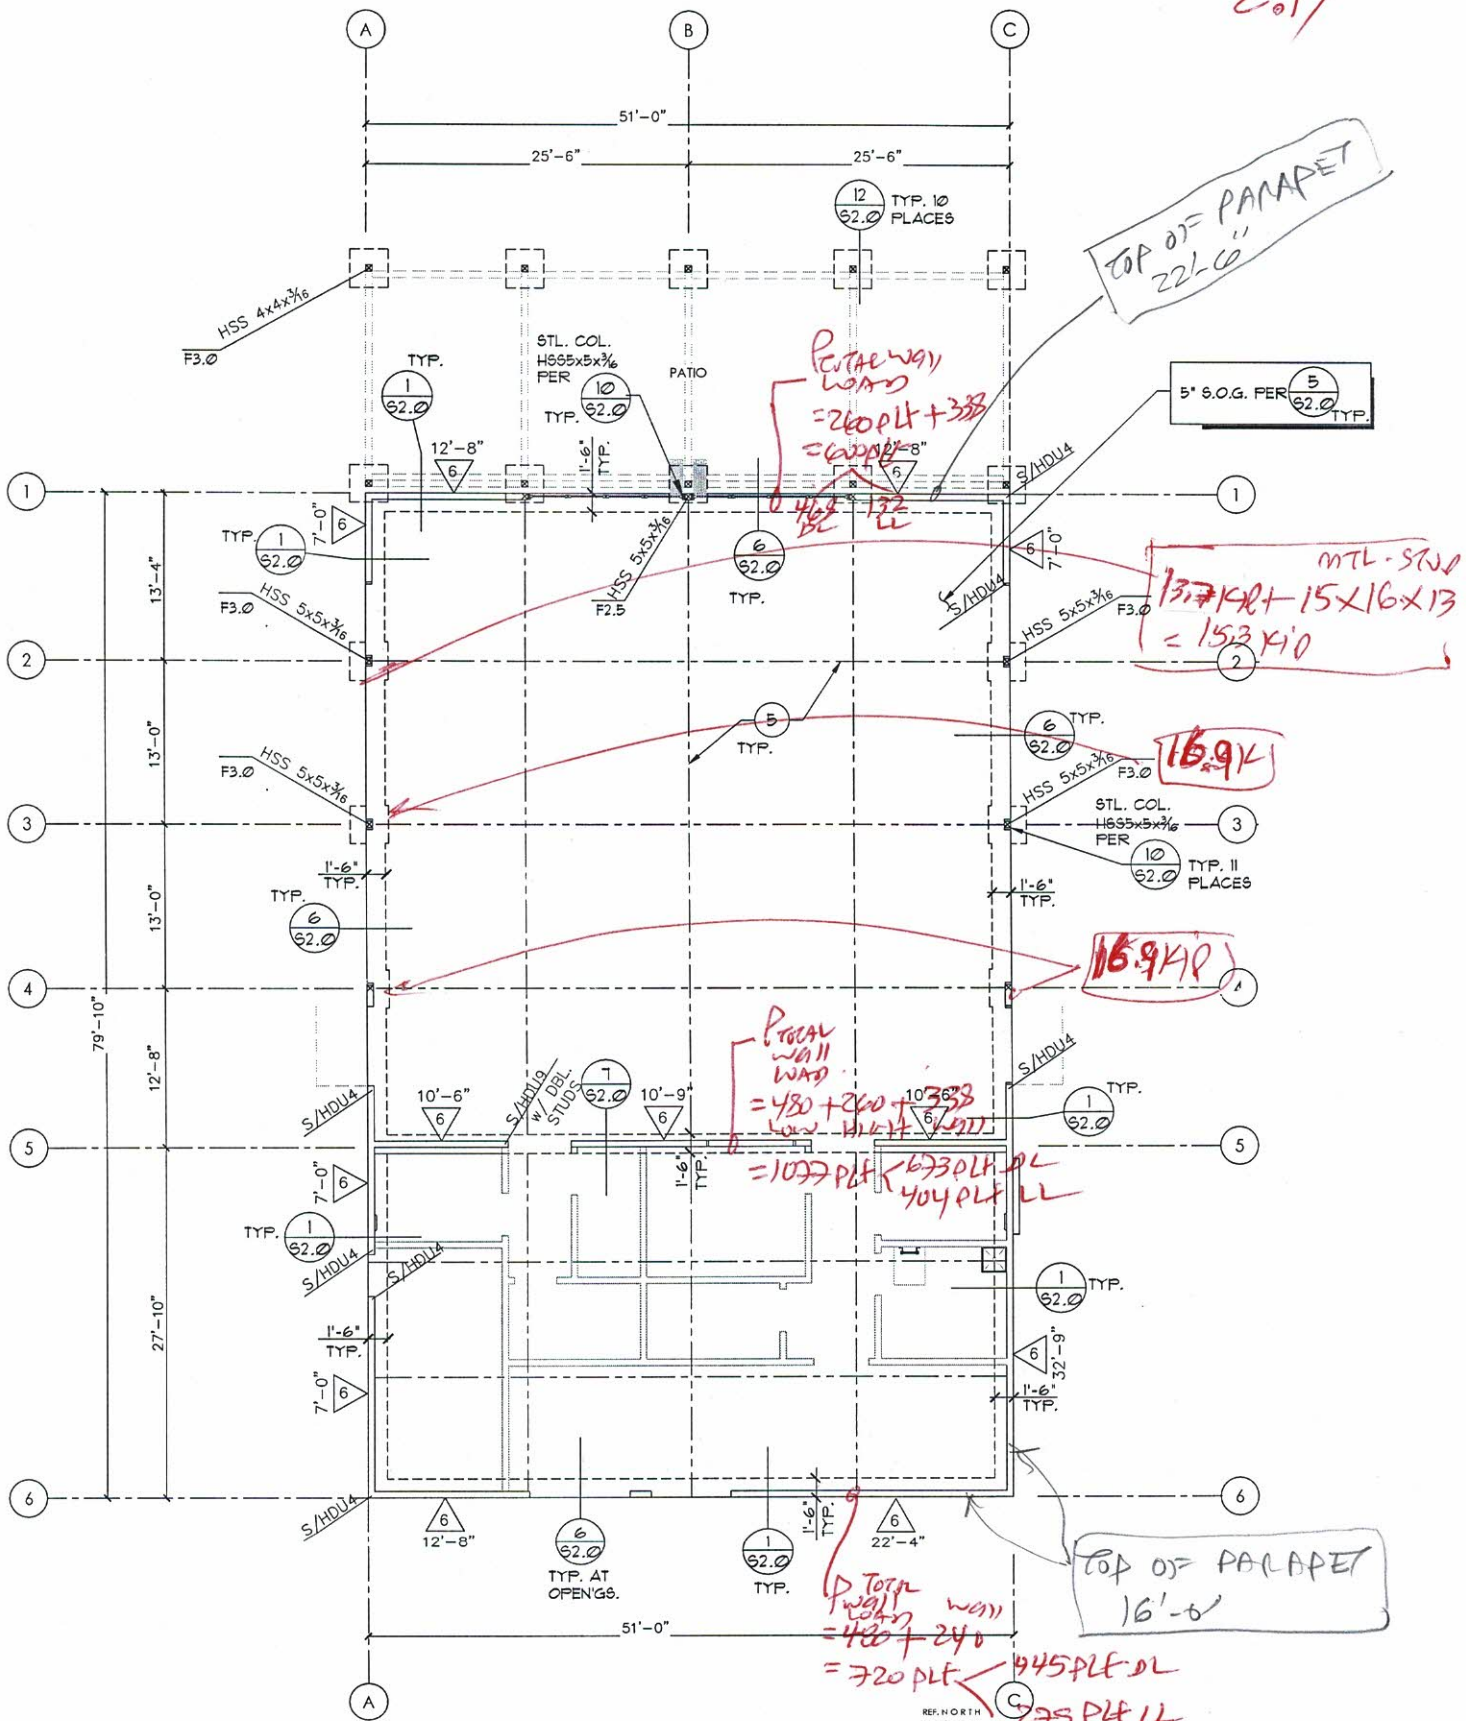 A
B
C
51'-0"
25'-6"
25'-6"
12
S2.0
TYP. 10
PLACES
TOP OF PARAPET
22'-6"
HSS 4x4x3/16
F3.0
TYP.
1
S2.0
STL. COL.
HSS5x5x3/16
PER
10
S2.0
TYP.
PATIO
WALL
LOAD
=260 PLF + 338
5" S.O.G. PER
5
S2.0
TYP.
12'-8"
6
1'-6"
TYP.
12'-8"
6
S/HDU4
132
DL
LL
1
1
7'-0"
6
TYP.
1
S2.0
HSS 5x5x3/16
F2.5
6
S2.0
TYP.
6
7'-0"
S/HDU4
13'-4"
HSS 5x5x3/16
F3.0
HSS 5x5x3/16
F3.0
MTL. STUD
13.7 KIP + 15X16X13
= 15.3 KIP
2
2
5
TYP.
6
S2.0
TYP.
13'-0"
HSS 5x5x3/16
F3.0
HSS 5x5x3/16
F3.0
16.9K
3
3
STL. COL.
HSS5x5x3/16
PER
10
S2.0
TYP. 11
PLACES
1'-6"
TYP.
1'-6"
TYP.
13'-0"
TYP.
6
S2.0
16.9 KIP
4
4
79'-10"
12'-8"
P TOTAL
WALL
LOAD
=480 + 260 + 338
LOW HIGH WALL
=1077 PLF
673 PLF DL
404 PLF LL
S/HDU4
10'-6"
6
S/HDU9
W/ DBL.
STUDS
7
S2.0
10'-9"
6
10'-6"
6
S/HDU4
TYP.
1
S2.0
5
5
1'-6"
TYP.
7'-0"
6
TYP.
1
S2.0
S/HDU4
S/HDU4
1
S2.0
TYP.
27'-10"
1'-6"
TYP.
6
32'-9"
7'-0"
6
1'-6"
TYP.
6
6
S/HDU4
6
12'-8"
6
S2.0
TYP. AT
OPEN'GS.
1
S2.0
TYP.
1'-6"
TYP.
6
22'-4"
TOP OF PARAPET
16'-0"
P TOTAL
WALL
LOAD WALL
=480 + 240
=720 PLF
PLF DL
PLF LL
51'-0"
A
C
REF. NORTH